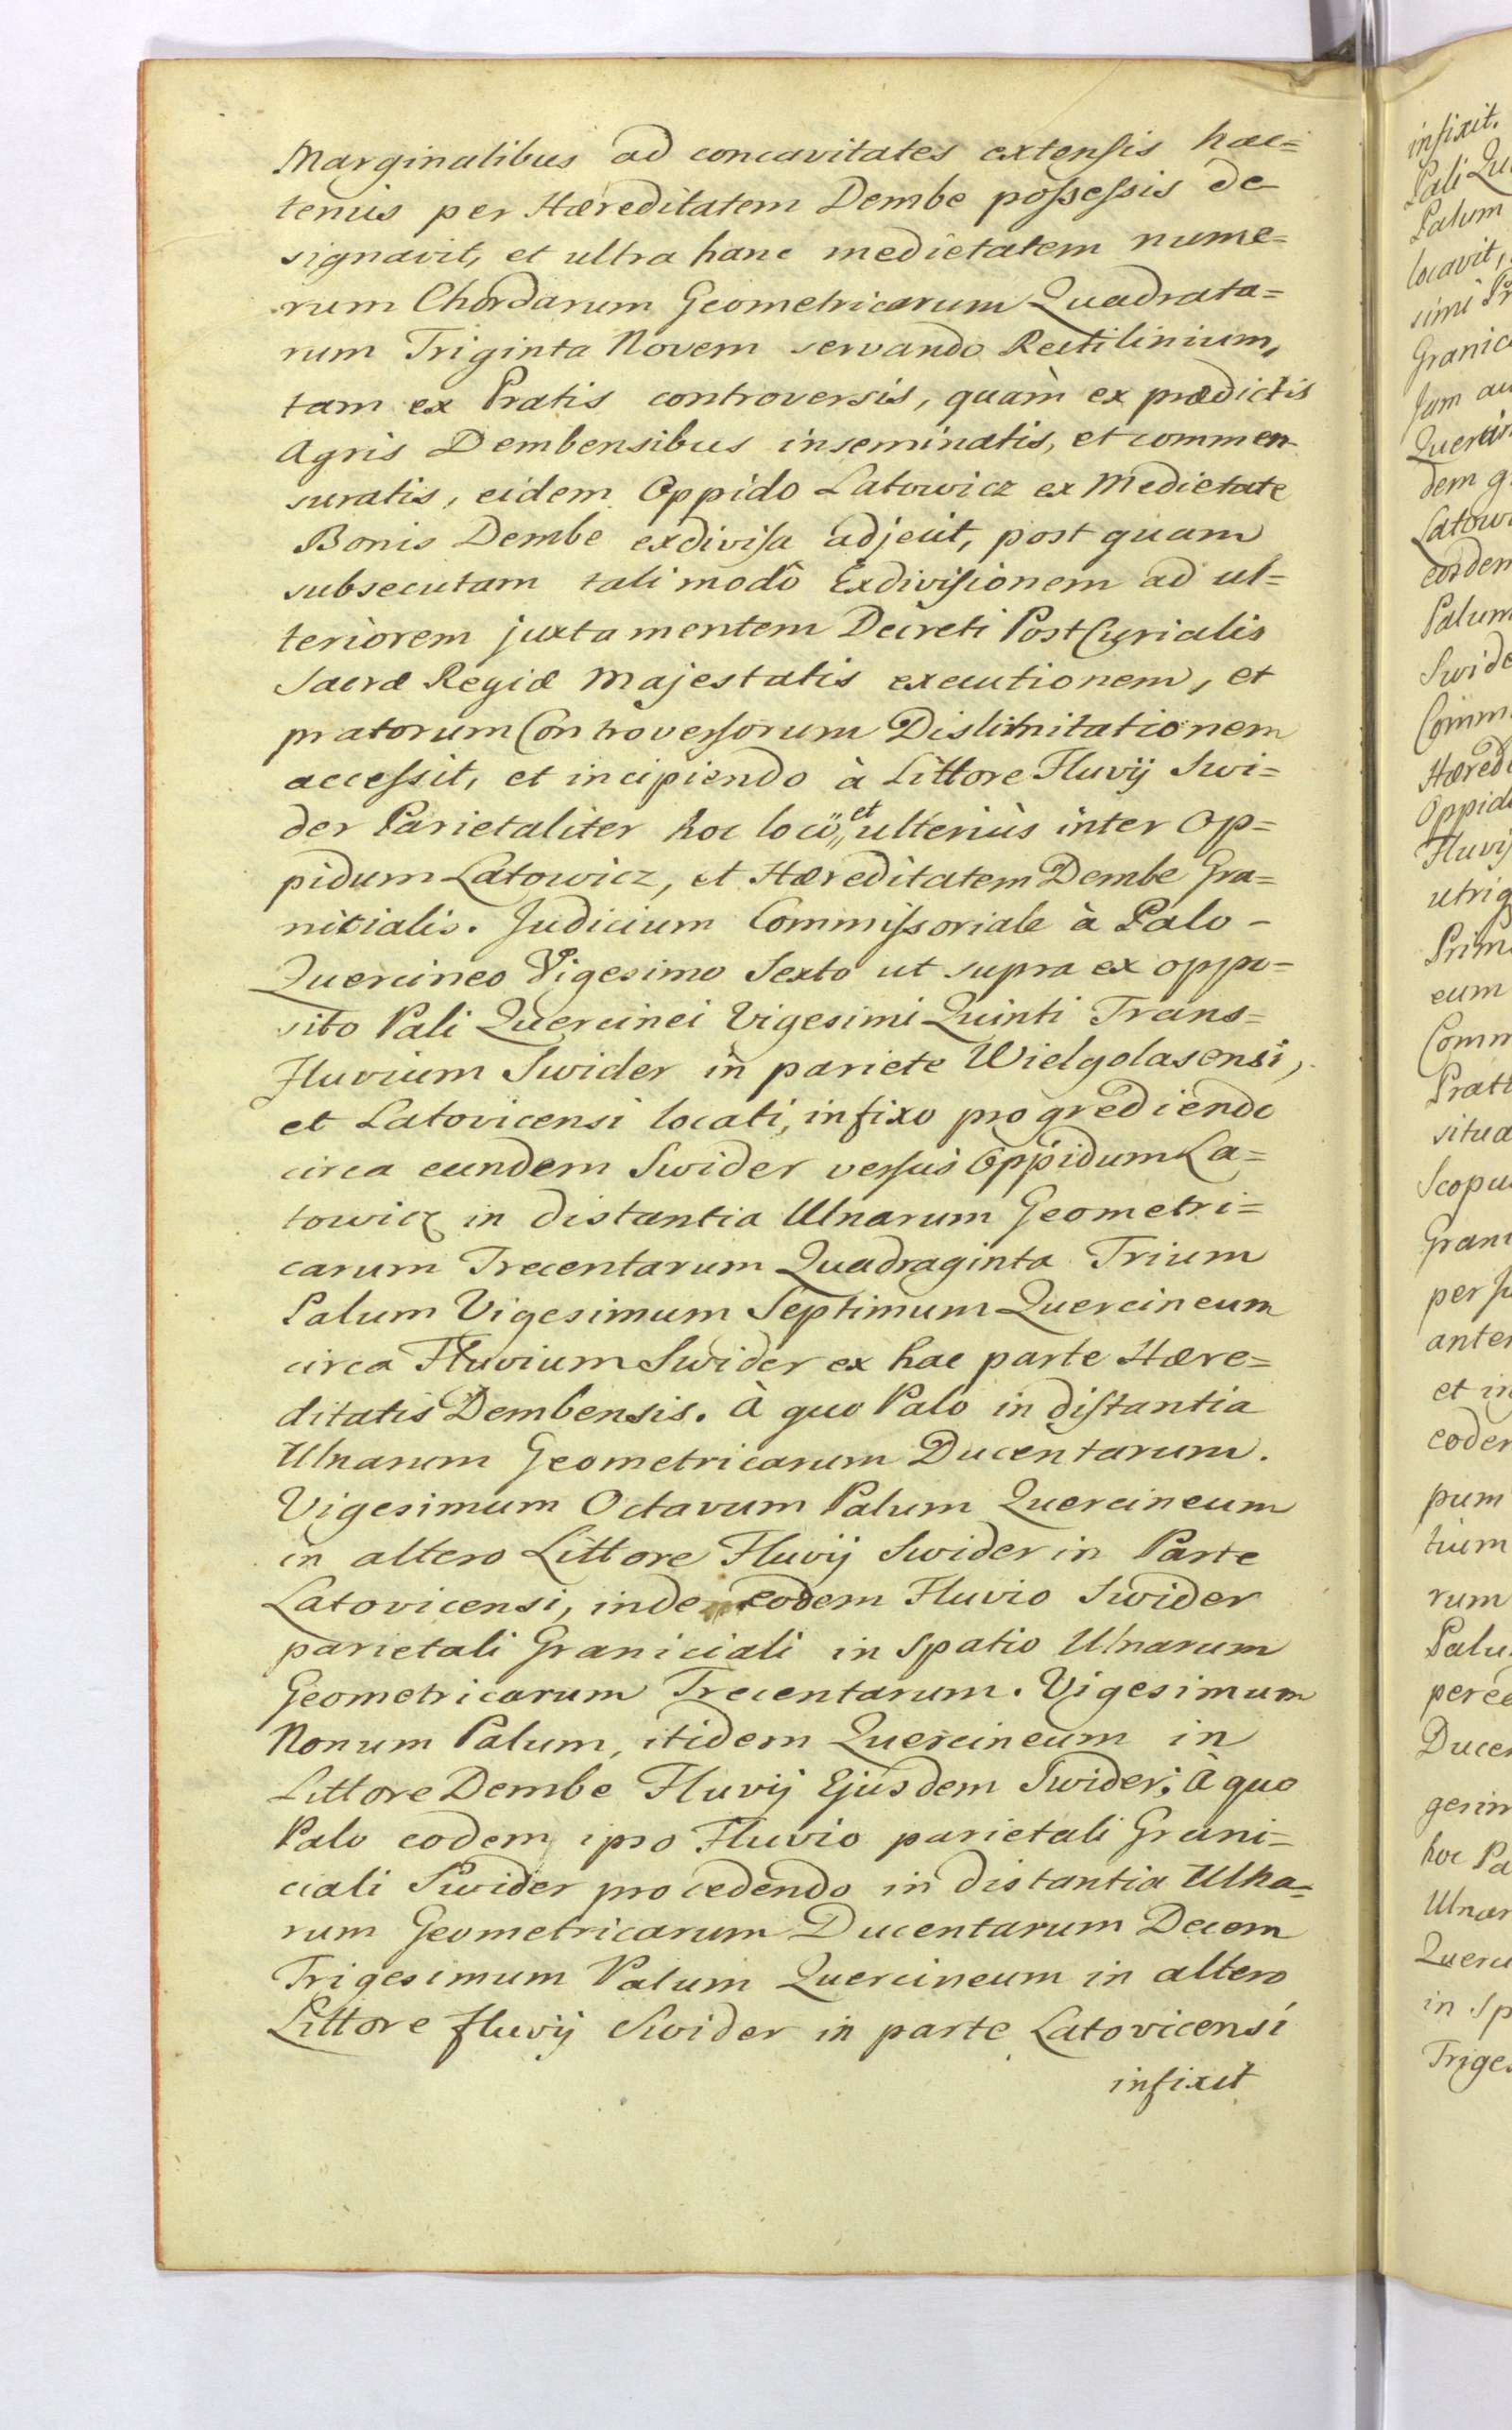 Marginalibus ad concavitates extensis hac=
tenus per Hæreditatem Dembe possessis de
signavit, et ultra hanc medietatem nume=
rum Chordarum Geometricarum Quadrata=
rum Triginta Novem servando Rectilinium,
tam ex Pratis controversis, quàm ex prædictis
Agris Dembensibus inseminatis, et commen
suratis, eidem Oppido Latowicz ex Medietate
Bonis Dembe exdivisa adjecit, post quam
subsecutam tali modô Exdivisionem ad ul=
teriorem juxta mentem Decreti PostCurialis
Sacræ Regiæ Majestatis executionem, et
pratorum Controversorum Dislimitationem
accessit, et incipiendo à Littore Fluvij Swi=
der Parietaliter hoc locô, et ulteriùs inter Op=
pidum Latowicz, et Hæreditatem Dembe Gra=
nicialis. Judicium Commissoriale à Palo -
Quercineo Vigesimo Sexto ut supra ex oppo=
sito Pali Quercinei Vigesimi Quinti Trans=
Fluvium Swider in pariete Wielgolasensi,
et Latovicensi locati, infixo progrediendo
circa eundem Swider versus Oppidum La=
towicz in distantia Ulnarum Geometri=
carum Trecentarum Quadraginta Trium
Palum Vigesimum Septimum Quercineum
circa Fluvium Swider ex hac parte Hære=
ditatis Dembensis. à quo Palo in distantia
Ulnarum Geometricarum Ducentarum.
Vigesimum Octavum Palum Quercineum
in altero Littore Fluvij Swider in Parte
Latovicensi, inde eodem Fluvio Swider
parietali Graniciali in Spatio Ulnarum
Geometricarum Trecentarum. Vigesimum
Nonum Palum, itidem Quercineum in
Littore Dembe Fluvij Ejusdem Swider; à quo
Palo eodem ipso Fluvio parietali Grani=
ciali Swider procedendo in distantia Ulna=
rum Geometricarum Ducentarum Decem
Trigesimum Palum Quercineum in altero
Littore fluvij Swider in parte Latovicensi
infixit
infixit.
Pali Qu
Palum
locavit,
simi Pr
Granic
Jam au
Querci
dem g
Latow
eosdem
Palum
Swide
Comm
Hæred
Oppid
Fluvij
utriq
Prim
eum
Comm
Prat
situa
Scopu
Grani
per Ju
anter
et in
eoden
pum
tium
rum
Palu
peree
Ducen
gesim
hoc Pa
Ulnar
Querci
in Sp
Triges